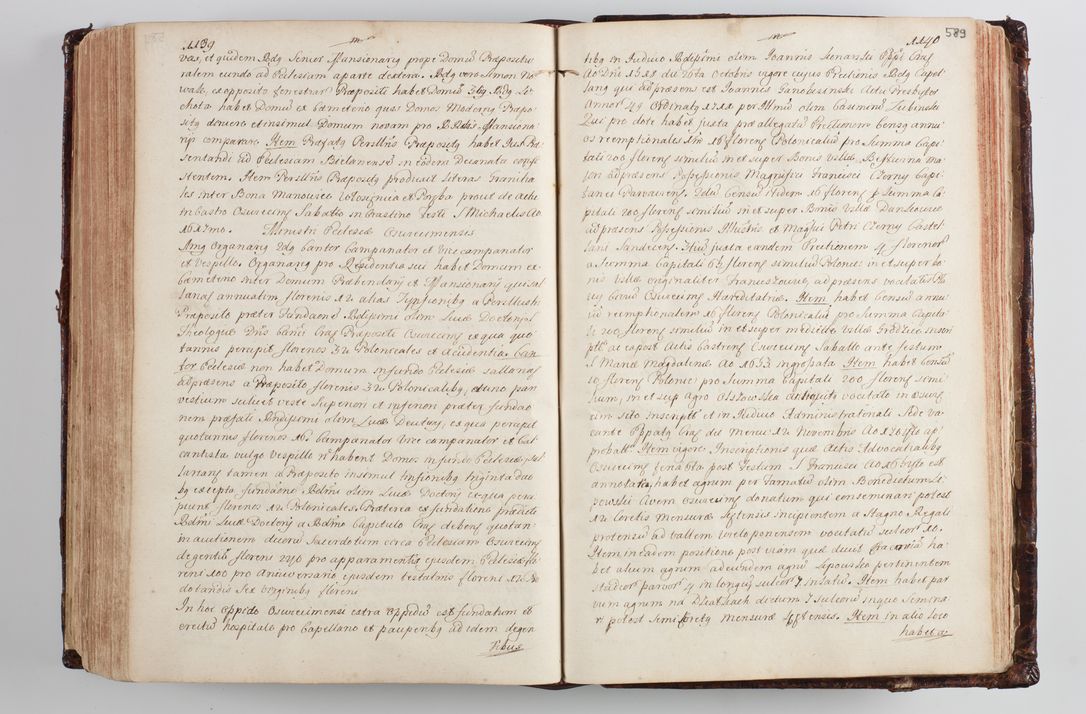 1139
vas, et quidem Rdg Senior Mansionarig prope Domū Præpositu
ralem eundo ad Ecclesiam a parte dextera. Rdg vero Simon No
wak, ex opposito fenestrar Præpositi habet Domū 3tig Rdg Le
chota habet Domū ex Cæmeterio quos Domos Moderng Præpo
sitg
et insimul Domum novam pro Mansiona
rijs comparare. Item Præfatg Perillris Præpositg habet Jus Præ
sentandi ad Ecclesiam Bielanensē in eodem Decanatu consis
tentem. Item Perillris Præpositg produxit literas Granitia
les inter Bona Manowice et prout de actu
in Castro Osviecim Sabatho in Crastino Festi S Michaelis Ao
1617mo. Ministri Ecclesiæ Osviecimensis
Img Organarig 2dg Cantor Campanator et Vice campanator
et Vespillo. Organarig pro Residentia sui habet Domum ex
Cæmeterio inter Domum Præbendarij et Mansionarij qui sal
lariat annuatim florenis 12 alias a Perillustri
Præposito præter fundaone Rdissimi olim Lucæ Doctoris S
Theologiæ Dnis Canci Crac Præpositi Osviecim ex qua quo
tannis percipit florenos 32 Polonicales et Accidentia. Can
tor Ecclesiæ non habet Domum in fundo Ecclesiæ sallariat
ad præsens a Præposito florenis 32 Polonicalibg, et uno pari
vestium scilicet veste superiori et inferiori præter fundao
nem præfati Rndissimi olim Lucæ Doctoris, ex qua percipit
quotannis florenos 16 Campanator Vice campanator et Cal
cantista vulgo Vespillo nō habent Domos in fundo Ecclesiæ, sal
lariant tamen a Præposito insimul triginta duo
bg excepta fundaone Rdmi olim Lucæ Doctoris ex qua perci
piunt florenos 12 Polonicales. Præterea ex fundatione prædicti
Rdmi Lucæ Doctoris a Rdmo Capitulo Crac debent quotan
in auctionem decoris Sacerdotum circa Ecclesiam Osviecim
degentiū florens 240 pro apparamentis ejusdem Ecclesiæ flo
reni 100 pro Anniversario ejusdem testatoris floreni 12
dotandis sex virginibg floreni
In hoc oppido Osviecimensi extra oppidū est fundatum et
erectū hospitale pro Capellano et pauperibg ad idem degen
tibus
589
1140
tibg in Judicio Rdissimi olim Joannis Konarski Eppi Crac
Ao Dni 1511 die 26ta Octobris vigore cujus Erectionis Rdg Capel
lang qui ad præsens est Joannis Ganobasinski Actu Presbyter
Annor 49 Ordinatg 1718 per Illmū olim Casimirū Lubinski
Qui pro dote habet juxta præallegatā Erectionem Censg annu
os reemptionales Imo 16 florens Polonicaliū pro Summa Capi
tali 200 florens similiū in et super Bonis Villæ
ad præsens Possessionis Magnifici Francisci Czerny Capi
tanei Parnavens. 2do Censū itidem 16 florens pro Summa Ca
pitali 200 florens similiū in et super Bonis Villæ Dankowice
ad præsens Possessionis Illustris et Magfici Petri Czerny Castel
lani Sandecens. 3tiū juxta eandem Erectionem 4 florenor
a Summa Capitali 62 florens similiū Polonic. in et super bo
nis Villæ originaliter Franciszowice, ad præsens vocitatis
Civiū Osviecim Hæreditariæ. Item habet Censū annu
ū reemptionalem 16 florens Polonicaliū pro Summa Capita
li 200 florens similiū in et super medietate Villæ Grodziec inscri
ptis ac ex post Actis Castrens Osviecim Sabatho ante festum
S Mariæ Magdalenæ Ao 1653 ingrossata. Item habet Censū
10 florens Polonic pro Summa Capitali 200 florens simi
lium, in et sup Agro Oszowska antiquitg vocitato in Osviec
im sito inscriptis et in Judicio Administratoriali Sede va
cante Eppatg Crac die Mercurij 12 Novembris Ao 1616to ap
probatis. Item vigore Inscriptionis quæ Actis Advocatialibg
Osviecim feria 6ta post Festum S Francisci Ao 1616to est
annotata, habet agrum per Famatū olim Benedictum Li
powski Civem Osviecim donatum qui conseminari potest
12 Coretis mensuræ Osftensis incipientem a Stagno Regali
protensū ad vallem vocitatū sulcor 10.
Item in eadem positione post viam quæ ducit Cracoviā ha
bet alium agrum adeundem agrū Lipowsko pertinentem
stadior parvor 4 in longū sulcor 7 in latū. Item habet par
vum agrum na Dzialkach dictum 7 sulcorū in quo semina
ri potest semi Coretg mensuræ Osftensis. Item in alio loco
habet a: